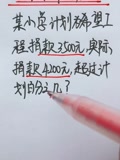 某小学计划为希望工
程捐款3500元,实际
捐款4200元,超过计
划百分之几?